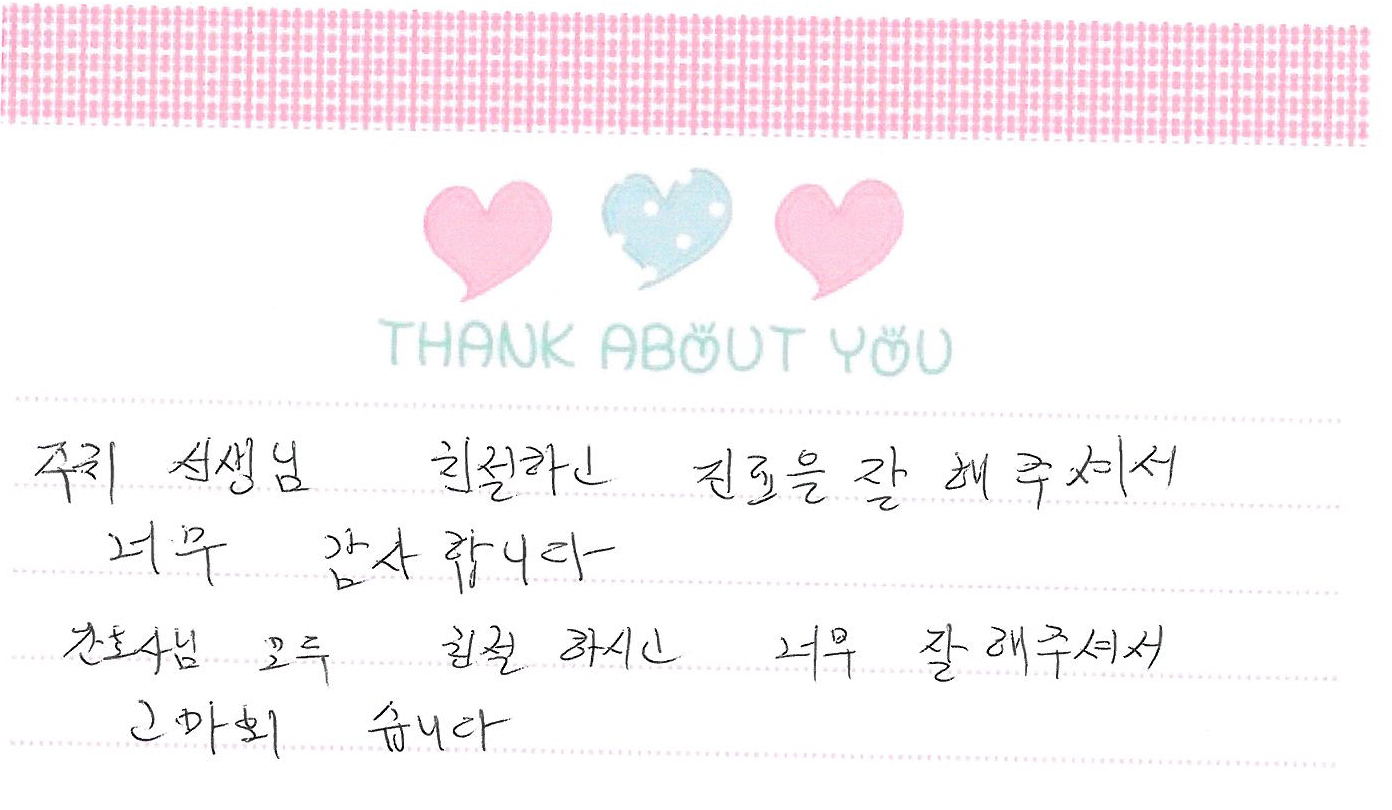 THANK ABOUT YOU
주치 선생님 친절하신 진료을 잘 해 주셔서
너무 감사 합니다
간호사님 모두 친절 하시신 너무 잘 해주셔서
고마워 습니다